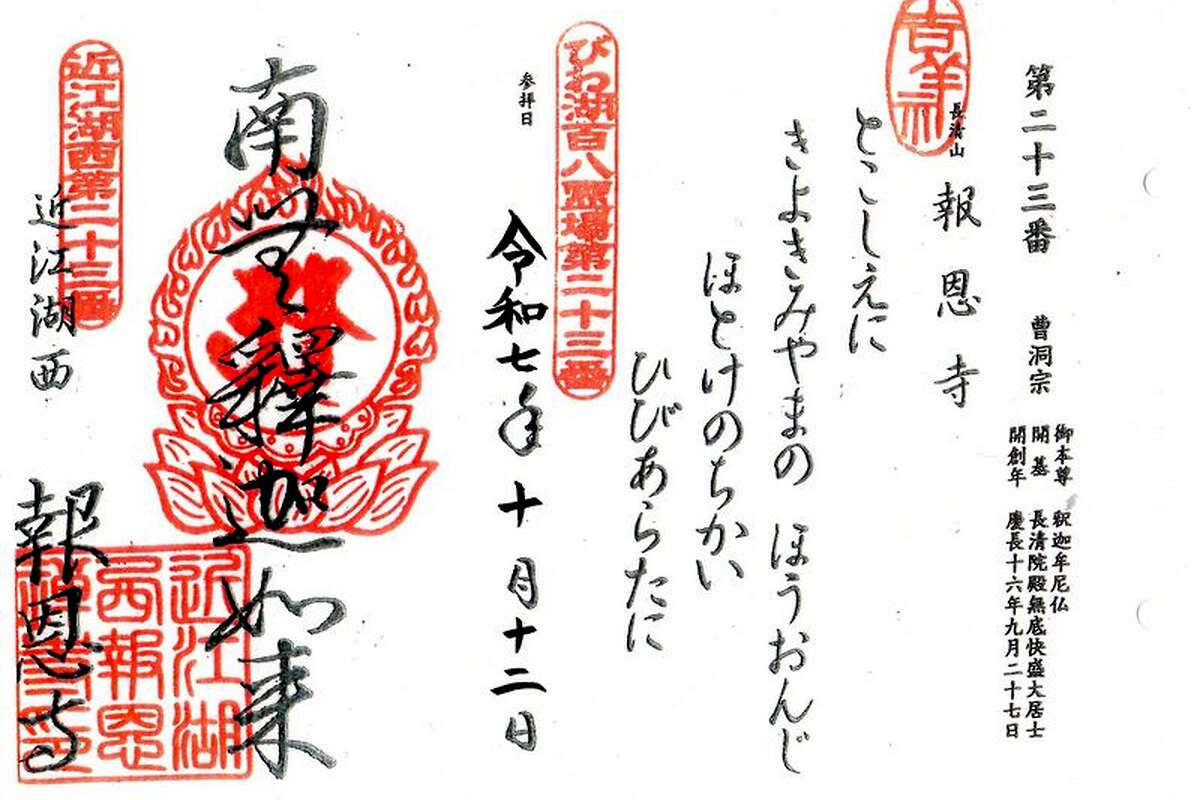 第二十三番　曹洞宗
御本尊　釈迦牟尼仏
開基　長清院殿無底快盛大居士
開創年　慶長十六年九月二十七日
長清山　報恩寺
とこしえに
きよきみやまの　ほうおんじ
ほとけのちかい
ひびあらたに
びわ湖百八霊場第二十三番
参拝日
令和七年十月十二日
南無釋迦如来
近江湖西第二十三番
近江湖西　報恩寺
近江湖
西報恩